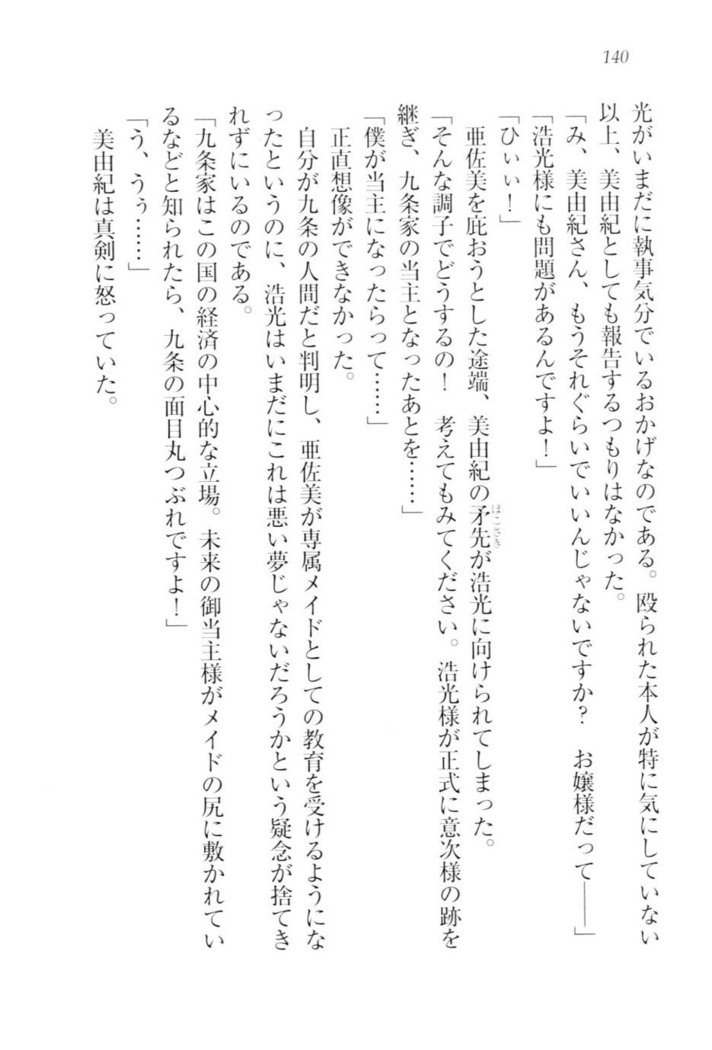 140
光がいまだに執事気分でいるおかげなのである。殴られた本人が特に気にしていない
以上、美由紀としても報告するつもりはなかった。
「み、美由紀さん、もうそれぐらいでいいんじゃないですか？　お嬢様だって――」
「浩光様にも問題があるんですよ！」
「ひぃぃ！」
亜佐美を庇おうとした途端、美由紀の矛先が浩光に向けられてしまった。
ほこさき
「そんな調子でどうするの！　考えてもみてください。浩光様が正式に意次様の跡を
継ぎ、九条家の当主となったあとを……」
「僕が当主になったらって……」
正直想像ができなかった。
自分が九条の人間だと判明し、亜佐美が専属メイドとしての教育を受けるようにな
ったというのに、浩光はいまだにこれは悪い夢じゃないだろうかという疑念が捨てき
れずにいるのである。
「九条家はこの国の経済の中心的な立場。未来の御当主様がメイドの尻に敷かれてい
るなどと知られたら、九条の面目丸つぶれですよ！」
「う、うぅ……」
美由紀は真剣に怒っていた。